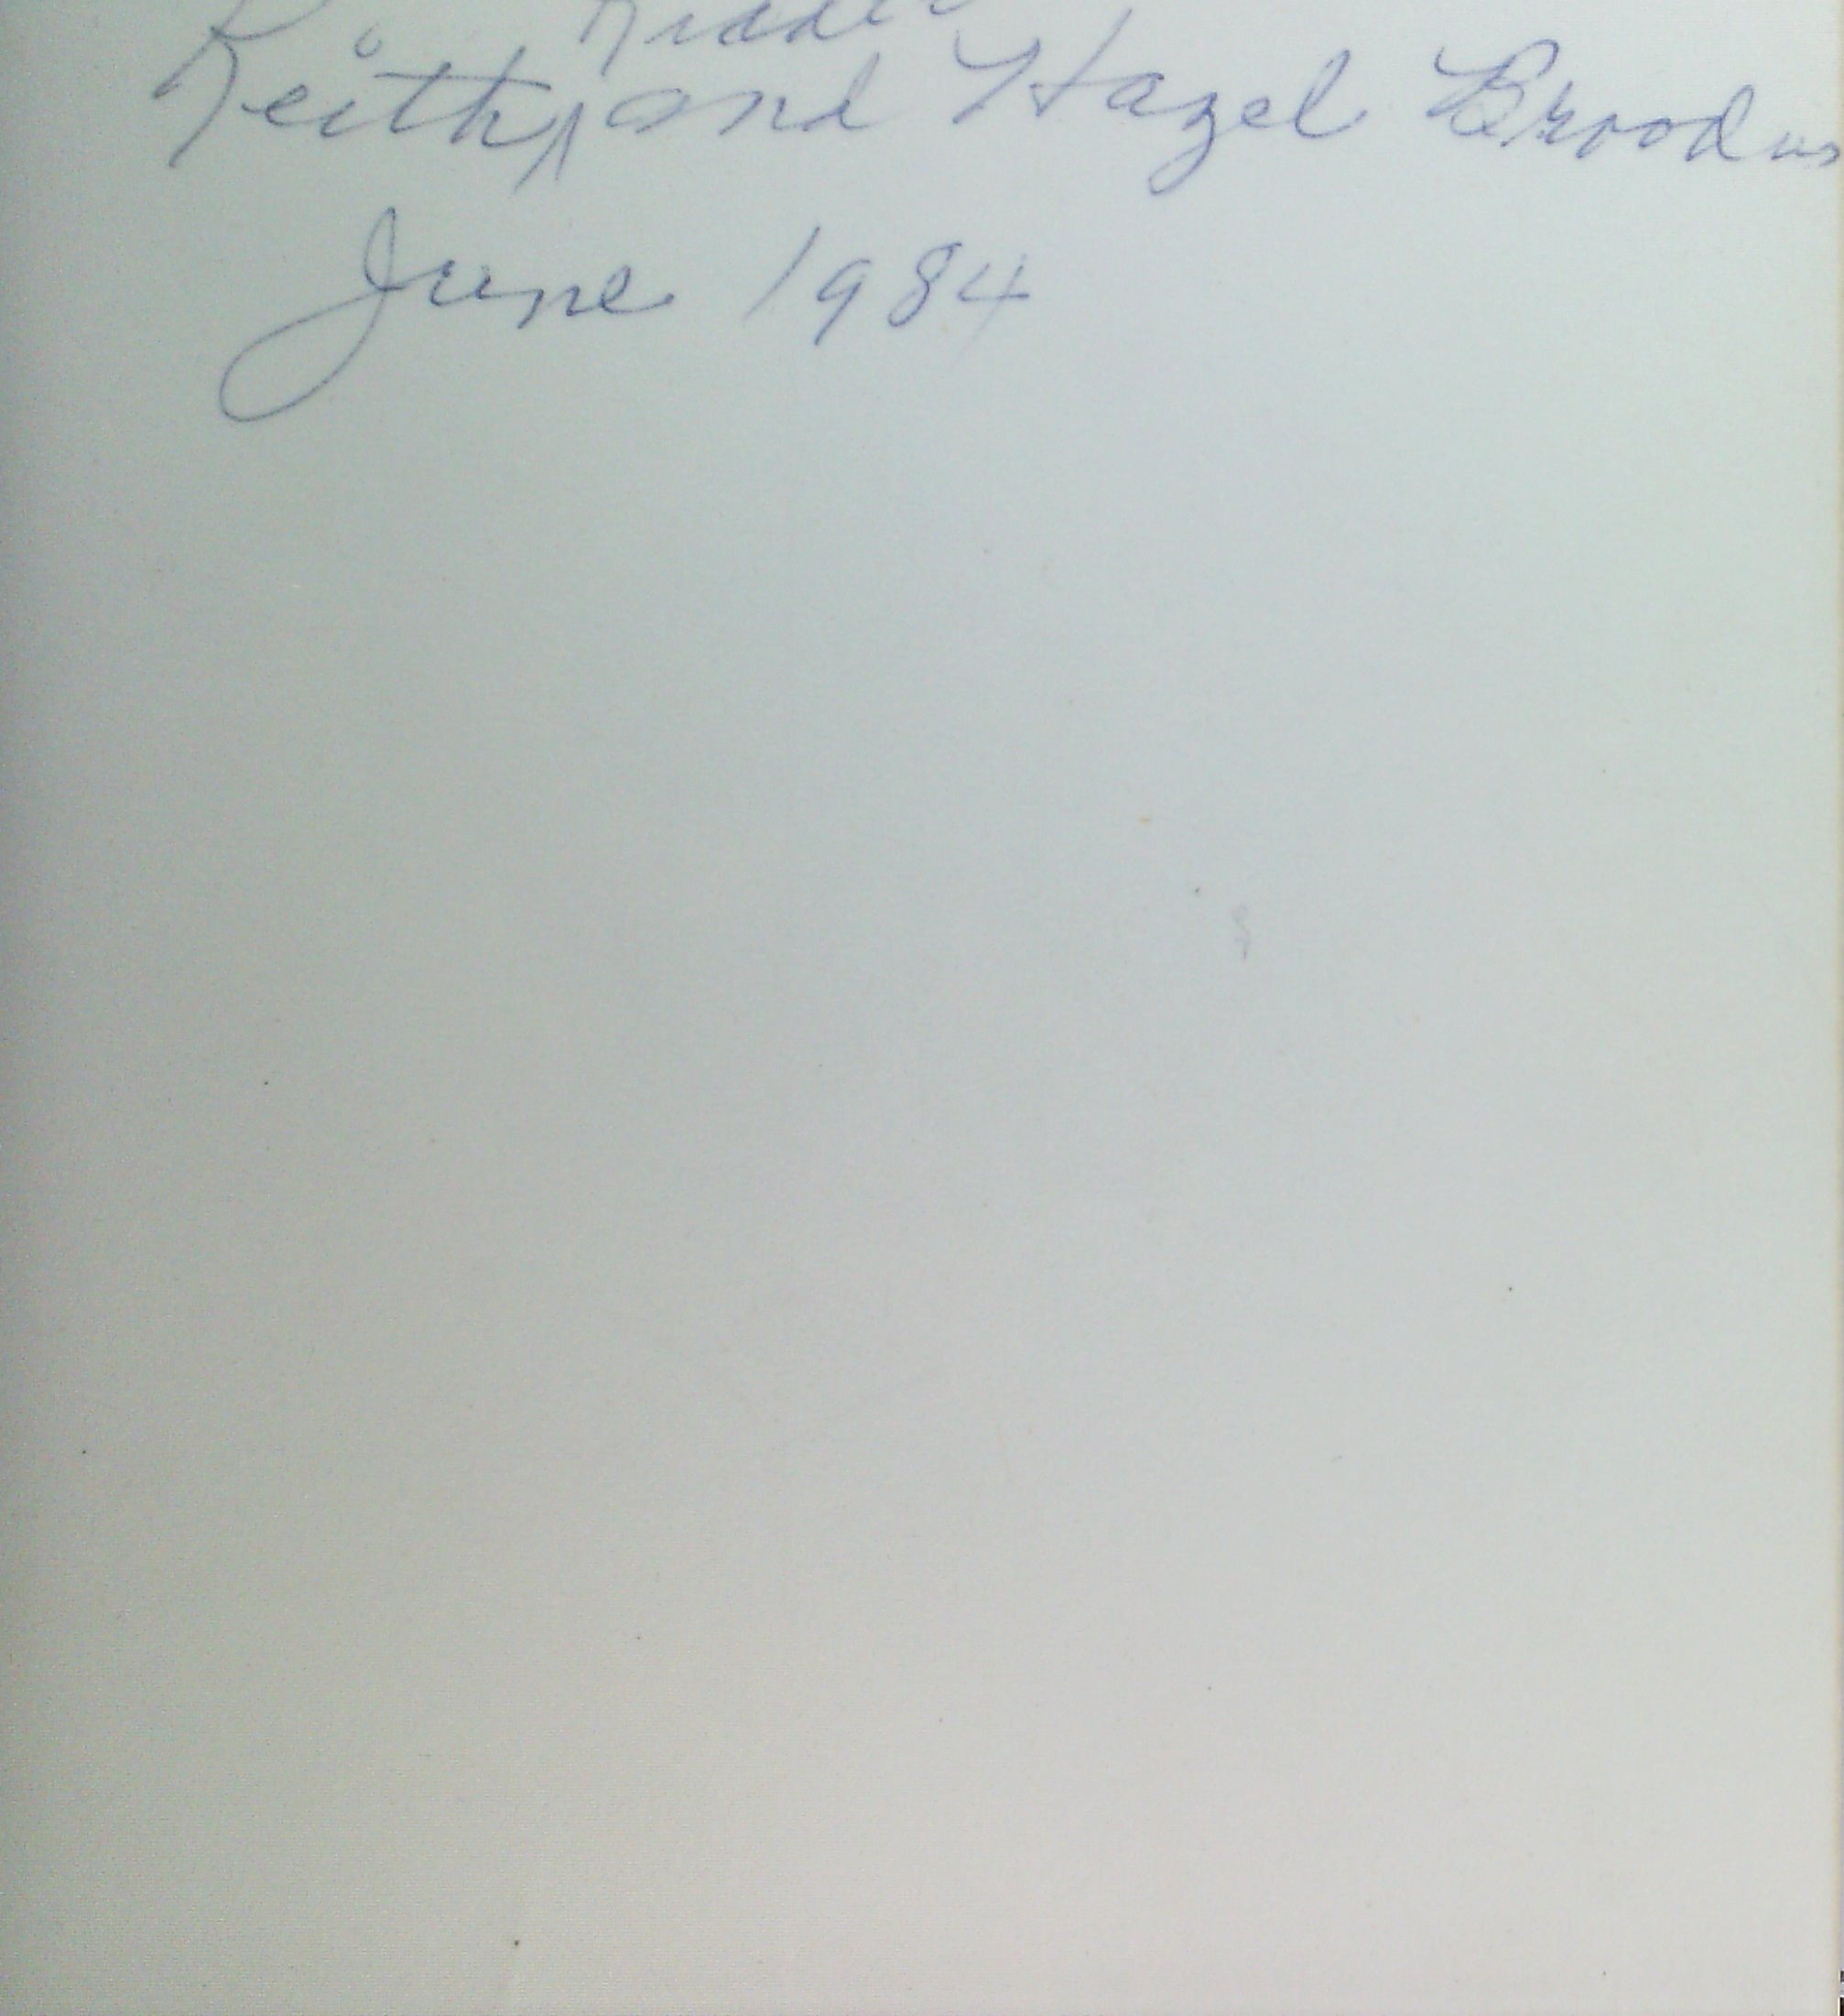 Keith, and Hazel Broodus
June 1984